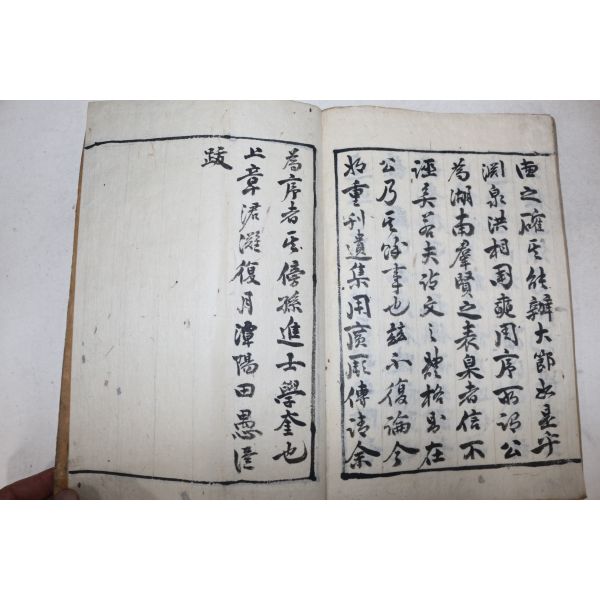 直之確其能辦大節如是乎
淵泉洪相周奭周序所謂公
為湖南羣賢之表臬者信不
誣矣若夫詩文之體格則在
公乃其餘事也玆不復論今
將重刊遺集用廣厥傳請余
為序者其傍孫進士學奎也
上章涒灘復月潭陽田愚謹
跋